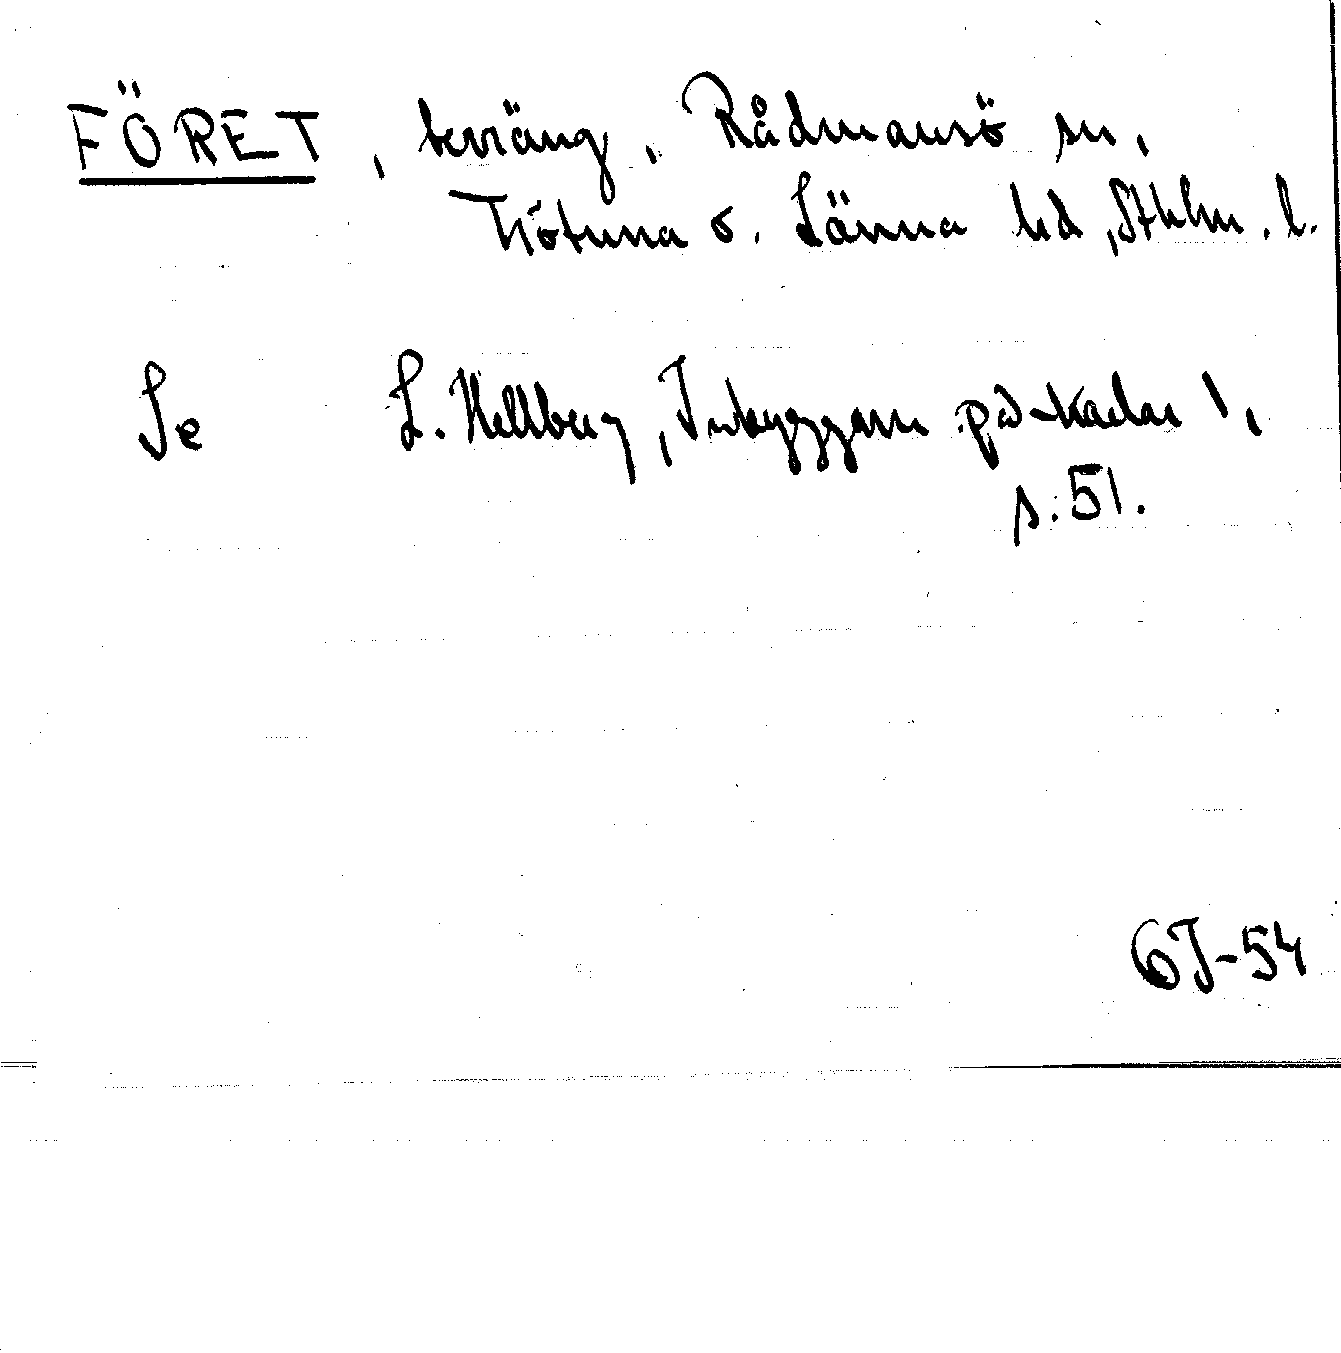 FÖRET, terräng, Rådmansö sn,
Frötuna o. Länna hd, Sthlm. l.
Se L. Hellberg, Inbyggarn på -karlar 1,
s. 51.
GJ-54